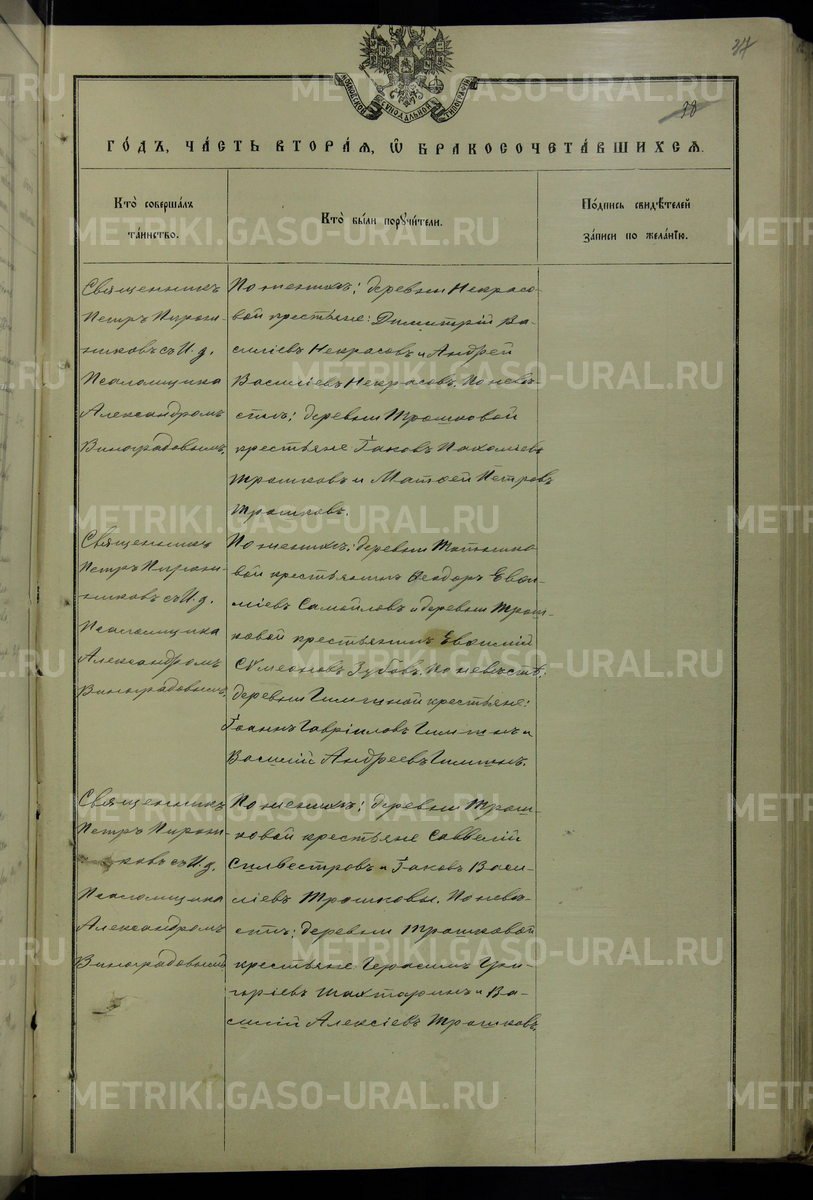 37
38
МОСКОВСКОЙ СѴНОДАЛЬНОЙ ТИПОГРАФІИ
ГО́ДЪ, ЧА́СТЬ ВТОРА́Я, Ѽ БРАКОСОЧЕТА́ВШИХСЯ.
Кто̀ соверша́лъ
та́инство.
Кто̀ бы́ли поручи́тели.
По́дпись свидѣ́телей
за́писи по жела́нію.
Священникъ
Петръ Пирож-
никовъ съ И. д.
Псаломщика
Александромъ
Виноградовымъ.
По женихѣ: деревни Некрасо-
вой крестьяне: Димитрій Ва-
силіевъ Некрасовъ и Андрей
Василіевъ Некрасовъ. По невѣ-
стѣ: деревни Трошковой
крестьяне Іаковъ Пахоміевъ
Трошковъ и Матѳей Петровъ
Трошковъ.
Священникъ
Петръ Пирож-
никовъ съ И. д.
Псаломщика
Александромъ
Виноградовымъ.
По женихѣ: деревни
вой крестьянинъ Ѳеодоръ
Самойловъ и деревни Трош-
ковой крестьянинъ Евѳимій
Сѵмеоновъ Зубовъ. По невѣстѣ:
деревни крестьяне:
Іоаннъ Гавріиловъ и
Василій Андреевъ
Священникъ
Петръ Пирож-
ковъ съ И. д.
Псаломщика
Александромъ
Виноградовымъ
По женихѣ: деревни Трош-
ковой крестьяне Савватій
Силвестровъ и Іаковъ Васи-
ліевъ Трошковы. По невѣ-
стѣ: деревни Трошковой
крестьяне Герасимъ Гри-
горіевъ Шахтаринъ и Ва-
силій Алексіевъ Трошковъ.
METRIKI.GASO-URAL.RU